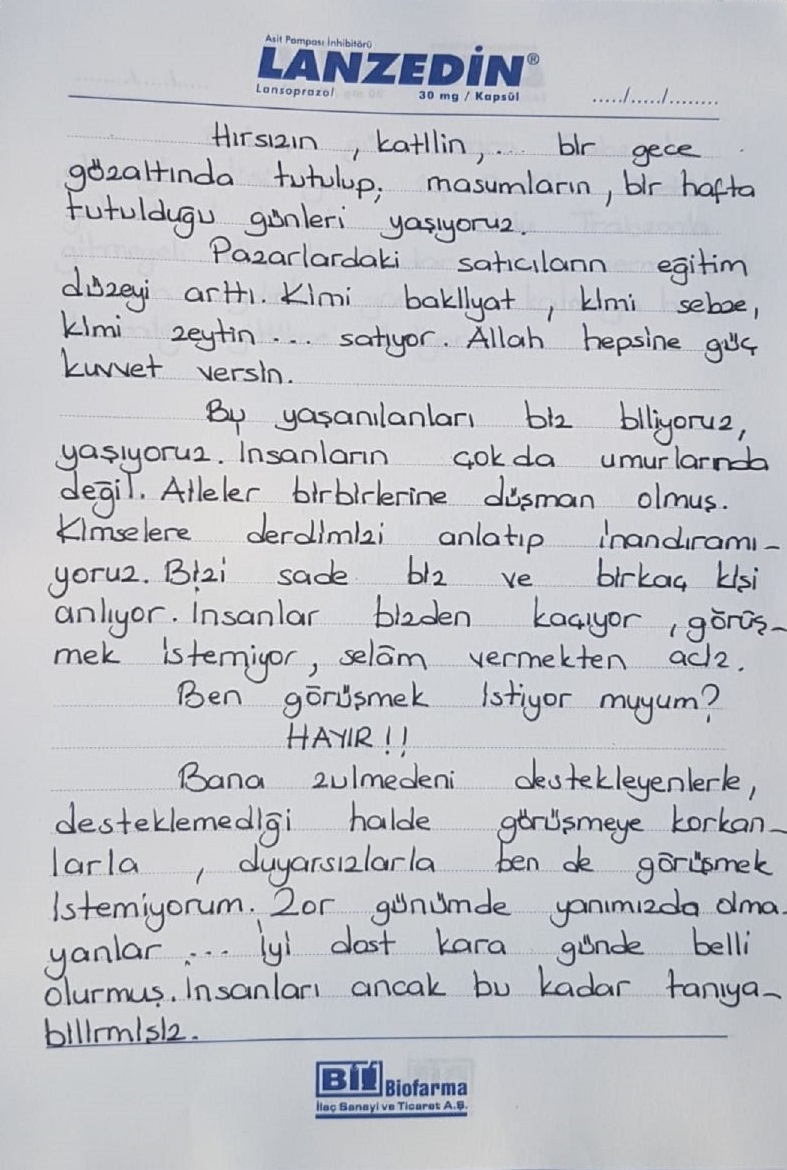 Asit Pompası İnhibitörü
LANZEDİN®
Lansoprazol 30 mg / Kapsül
...../...../........
Hırsızın , katilin, ... bir gece
gözaltında tutulup; masumların , bir hafta
tutulduğu günleri yaşıyoruz.
Pazarlardaki satıcıların eğitim
düzeyi arttı. Kimi bakliyat , kimi sebze,
kimi zeytin ... satıyor. Allah hepsine güç
kuvvet versin.
Bu yaşanılanları biz biliyoruz,
yaşıyoruz. İnsanların çok da umurlarında
değil. Aileler birbirlerine düşman olmuş.
Kimselere derdimizi anlatıp inandıramı-
yoruz. Bizi sade biz ve birkaç kişi
anlıyor. İnsanlar bizden kaçıyor , görüş-
mek istemiyor, selâm vermekten aciz.
Ben görüşmek istiyor muyum?
HAYIR !!
Bana zulmedeni destekleyenlerle,
desteklemediği halde görüşmeye korkan-
larla , duyarsızlarla ben de görüşmek
istemiyorum. Zor günümde yanımızda olma-
yanlar ... İyi dost kara günde belli
olurmuş. İnsanları ancak bu kadar tanıya-
bilirmişiz.
BİF Biofarma
İlaç Sanayi ve Ticaret A.Ş.